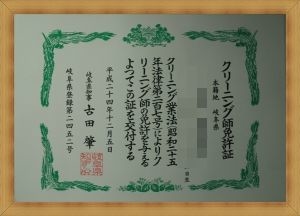 クリーニング師免許証
本籍地 岐阜県
日生
クリーニング業法(昭和二十五
年法律第二百七号)によりク
リーニング師の免許を与える
よつてこの証を交付する
平成二十四年十二月五日
岐阜県知事 古田 肇
岐阜県登録第二四五二号